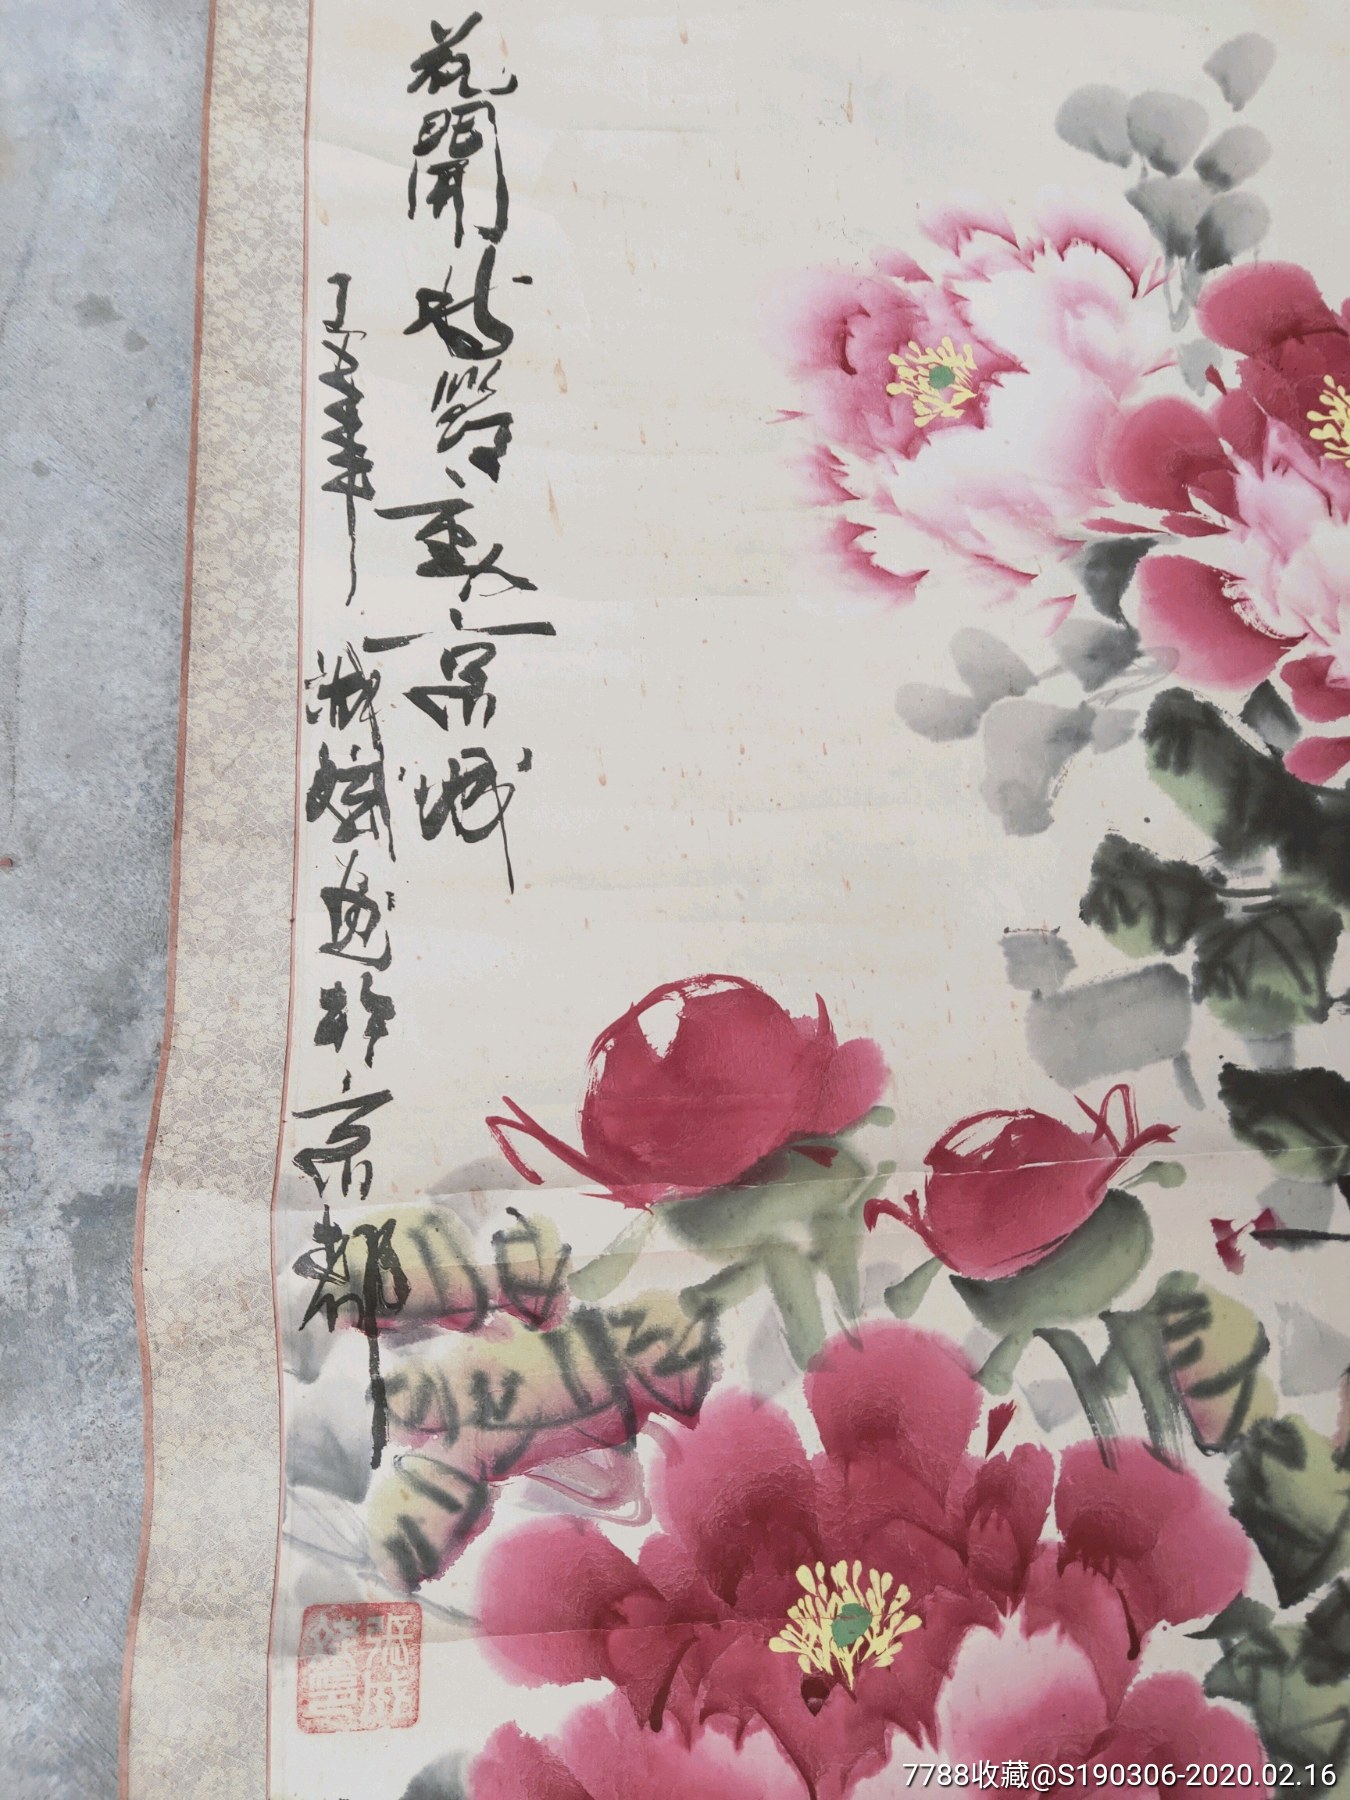 花開時節動京城
年 画於京都
7788收藏@S190306-2020.02.16